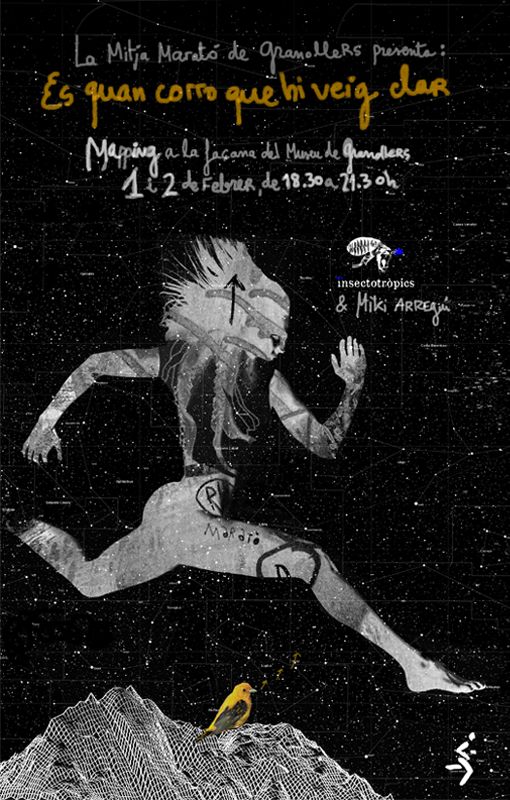 La Mitja Marató de Granollers presenta:
Es quan corro que hi veig clar
Mapping a la façana del Museu de Granollers
1 i 2 de Febrer, de 18.30 a 21.30h
insectotròpics
& Miki ARREGUI
Marató